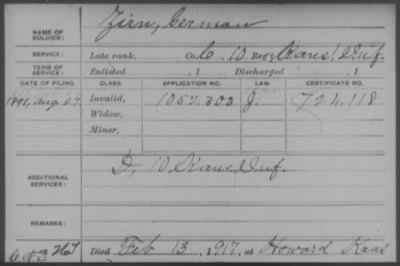 NAME OF SOLDIER: Zirn, German
SERVICE: Late rank, Co. C, 10 Reg't Kans. Inf.
TERM OF SERVICE: Enlisted , 1 Discharged , 1
DATE OF FILING. CLASS. APPLICATION NO. LAW. CERTIFICATE NO.
1891, Aug 27. Invalid, 1052.300 J. 724.118
Widow,
Minor,
ADDITIONAL SERVICES: D, 10 Kans. Inf.
REMARKS:
Died Feb 13, 1917, at Howard Kans